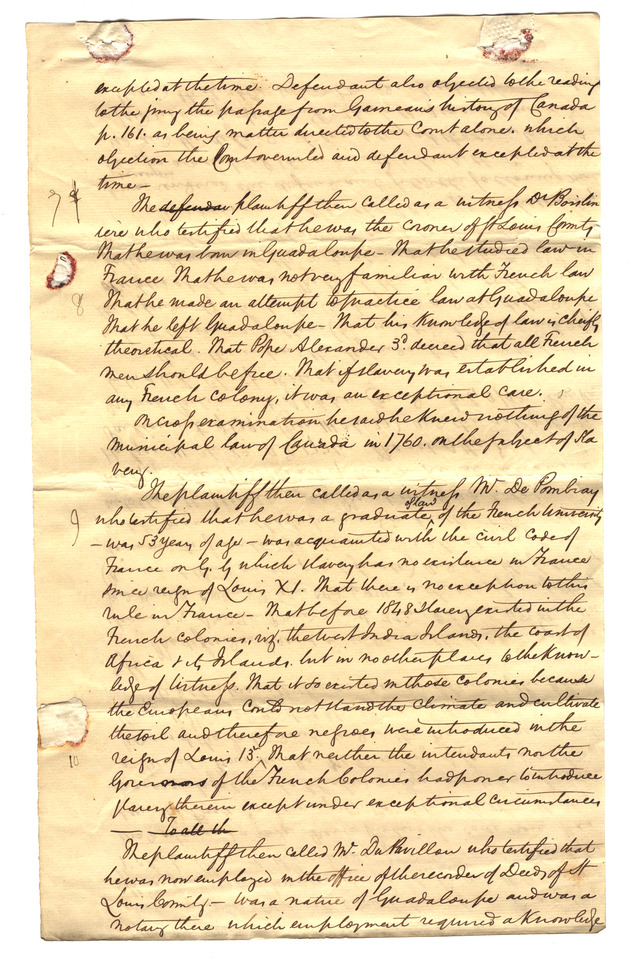 excepted at the time. Defendant also objected to the reading
to the jury the passage from Garneau's history of Canada
p. 161. as being matter directed to the Court alone. which
objection the Court overruled and defendant excepted at the
time —
7
The defendan plaintiff then called as a witness Dr Boislin
iere who testified that he was the coroner of St Louis County
That he was born in Guadaloupe — That he studied law in
France That he was not very familiar with French law
8 That he made an attempt to practice law at Guadaloupe
That he left Guadaloupe — That his Knowledge of law is chiefly
theoretical. That Pope Alexander 3d decreed that all French
men should be free. That if slavery was established in
any French colony, it was an exceptional case.
On cross examination he said he knew nothing of the
municipal law of Canada in 1760. on the subject of Sla
very.
The plaintiff then called as a witness Mr. De Pombray
9 who testified that he was a graduate of law of the French University
— was 53 years of age — was acquainted with the civil Code of
France only by which slavery has no existence in France
since reign of Louis XI. That there is no exception to this
rule in France — That before 1848 slavery existed in the
French colonies, viz, the West India Islands, the coast of
Africa & its Islands. but in no other places to the Know-
ledge of Witness. That it so existed in those colonies because
the Europeans could not stand the climate and cultivate
the soil and therefore negroes were introduced in the
reign of Louis 13. That neither the intendants nor the
10 Governors of the French Colonies had power to introduce
slavery therein except under exceptional circumstances
— To all th
The plaintiff then called Mr. Du Pavillon who testified that
he was now employed in the office of the recorder of Deeds of St
Louis County — was a native of Guadaloupe and was a
notary there which employment required a Knowledge